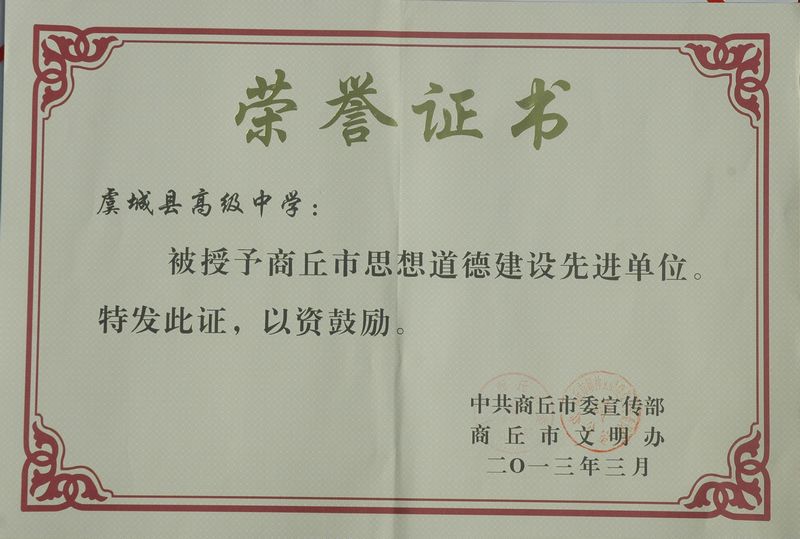 荣誉证书
虞城县高级中学：
被授予商丘市思想道德建设先进单位。
特发此证，以资鼓励。
中共商丘市委宣传部
商丘市文明办
二〇一三年三月